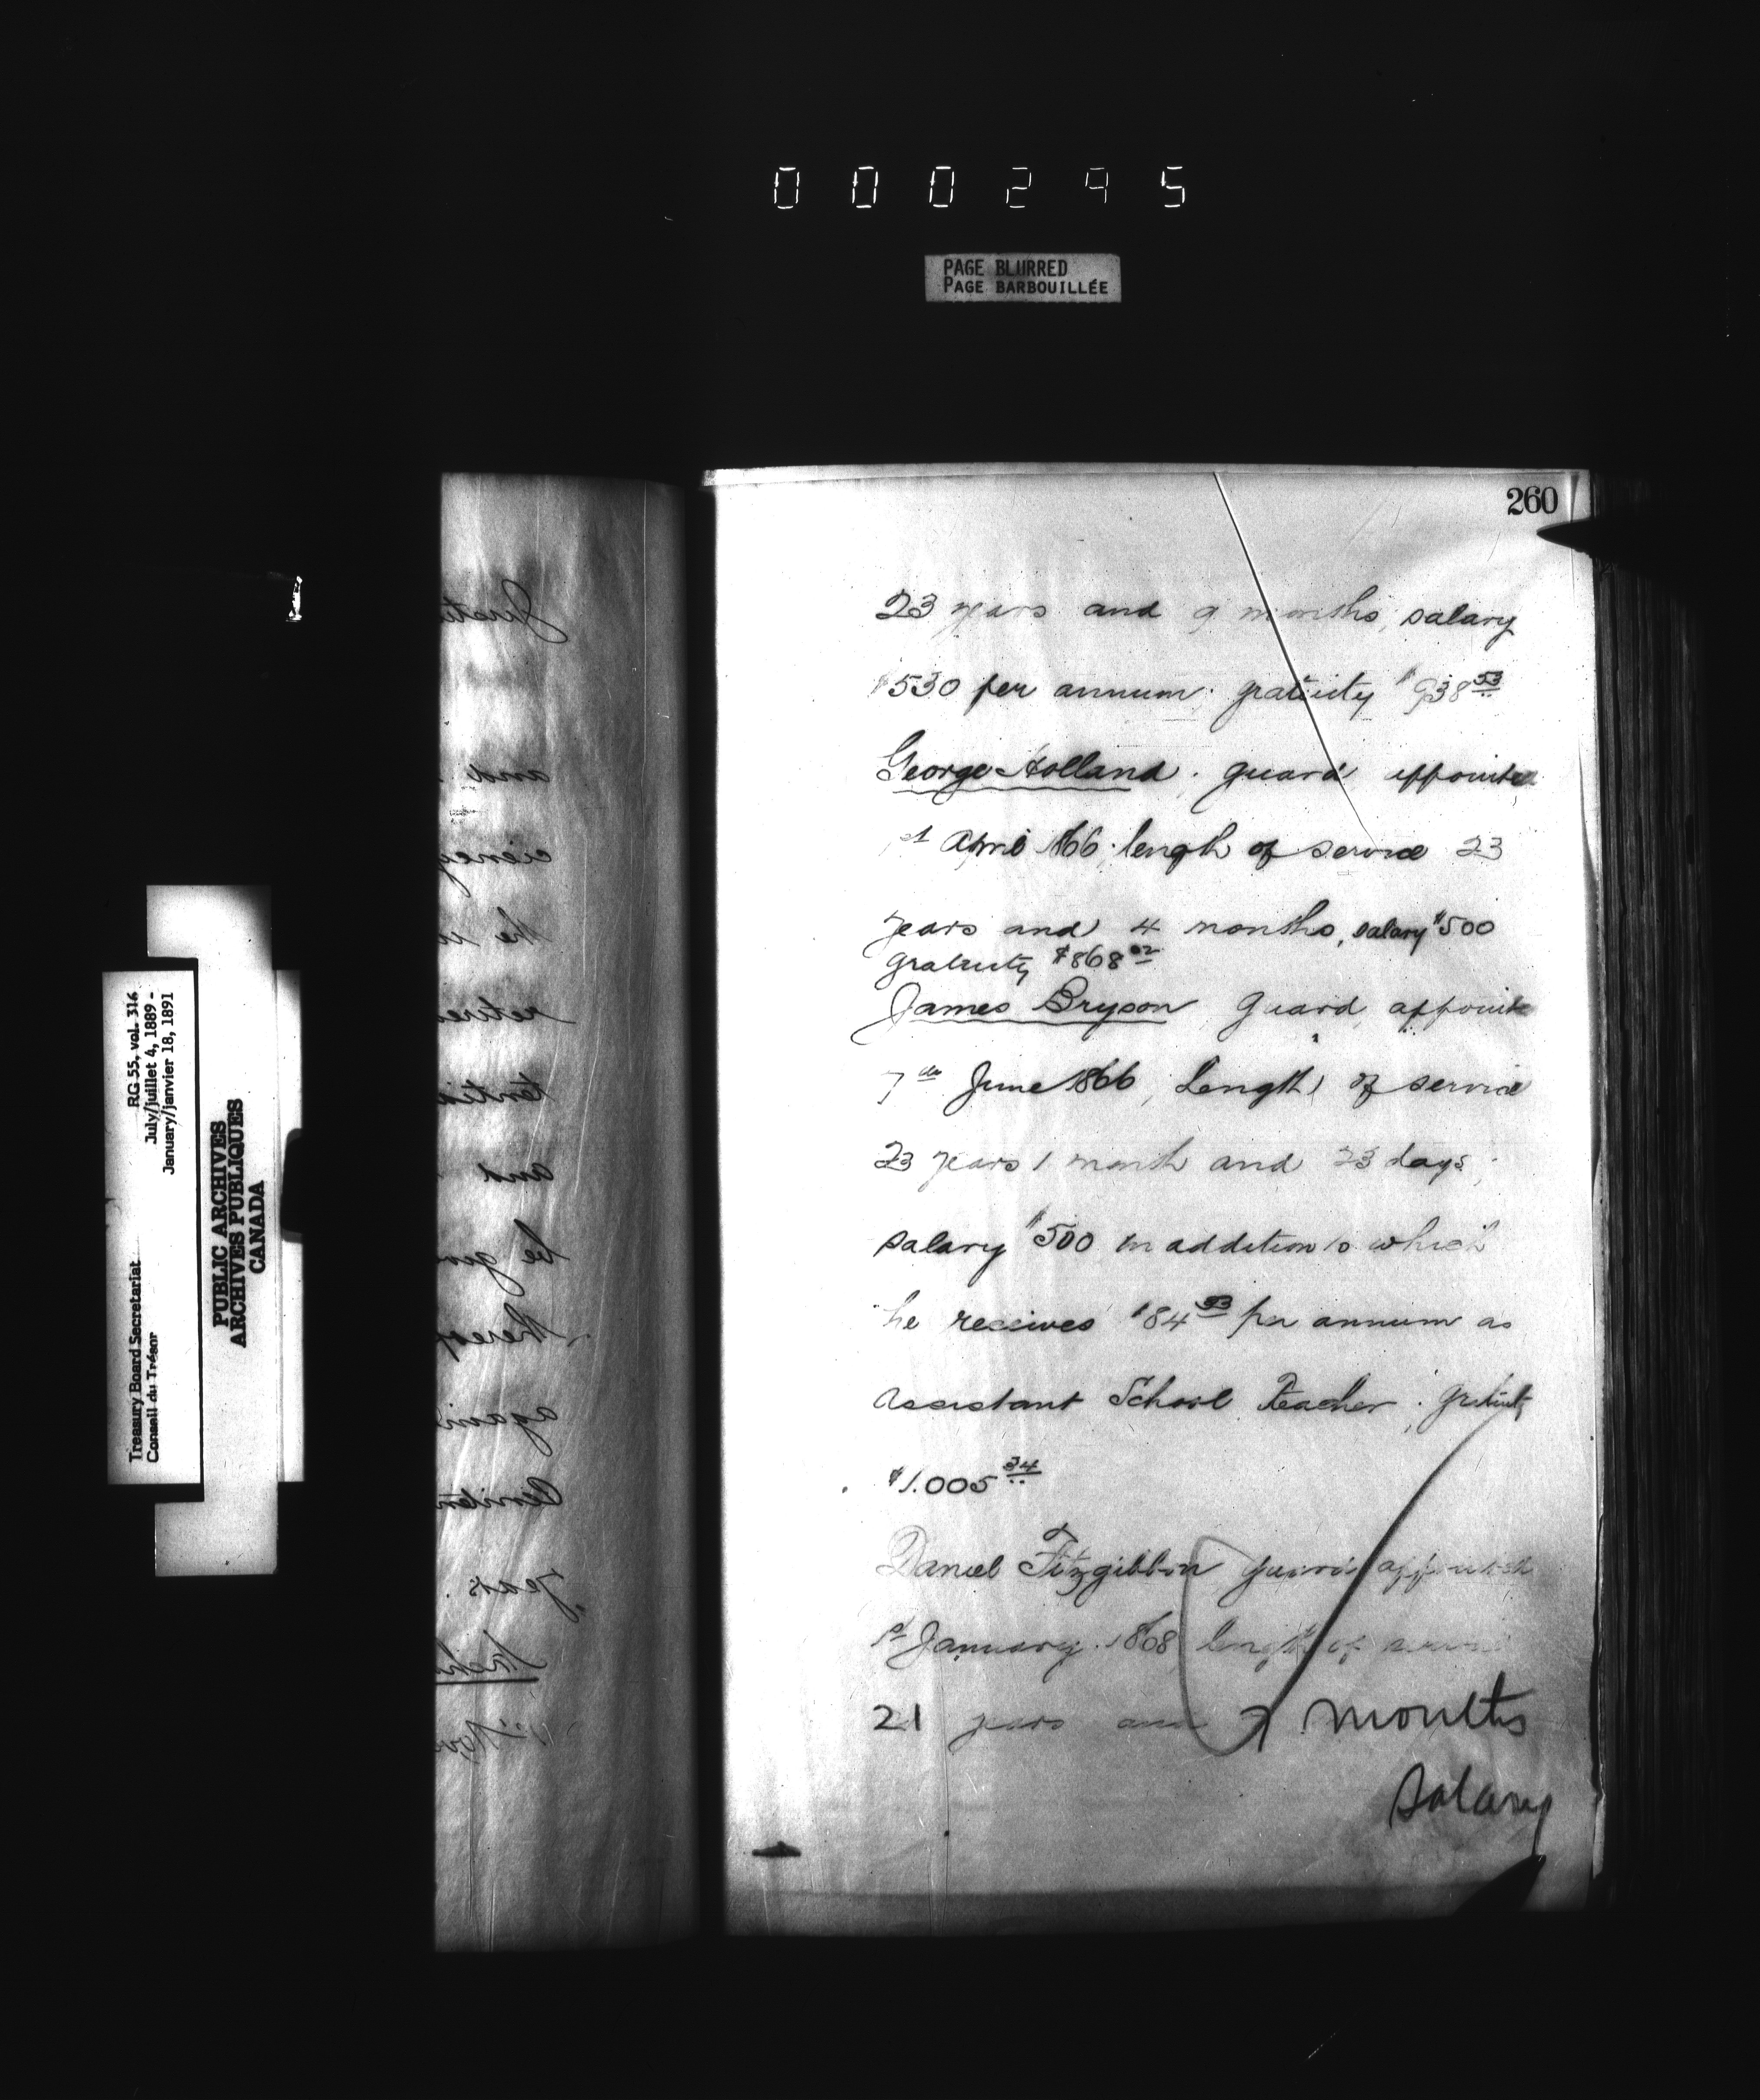 000295
PAGE BLURRED
PAGE BARBOUILLÉE
RG 55, vol. 316
July/juillet 4, 1889 -
January/janvier 18, 1891
Treasury Board Secretariat
Conseil du Trésor
PUBLIC ARCHIVES
ARCHIVES PUBLIQUES
CANADA
and
the
and
years
260
23 years and 9 months, salary
$530 per annum; gratuity $938 53
George Holland, guard appointed
1st April 1866; length of service 23
years and 4 months, salary $500
gratuity $868 02
James Bryson Guard, appointe
7th June 1866, Length of service
23 years 1 month and 23 days;
salary $500 in addition to which
he receives $84 93 per annum as
Assistant School Teacher; gratuity
$1.005 34
Daniel Fitzgibbon guard appointed
1st January 1868, length of service
21 years and 7 months
salary